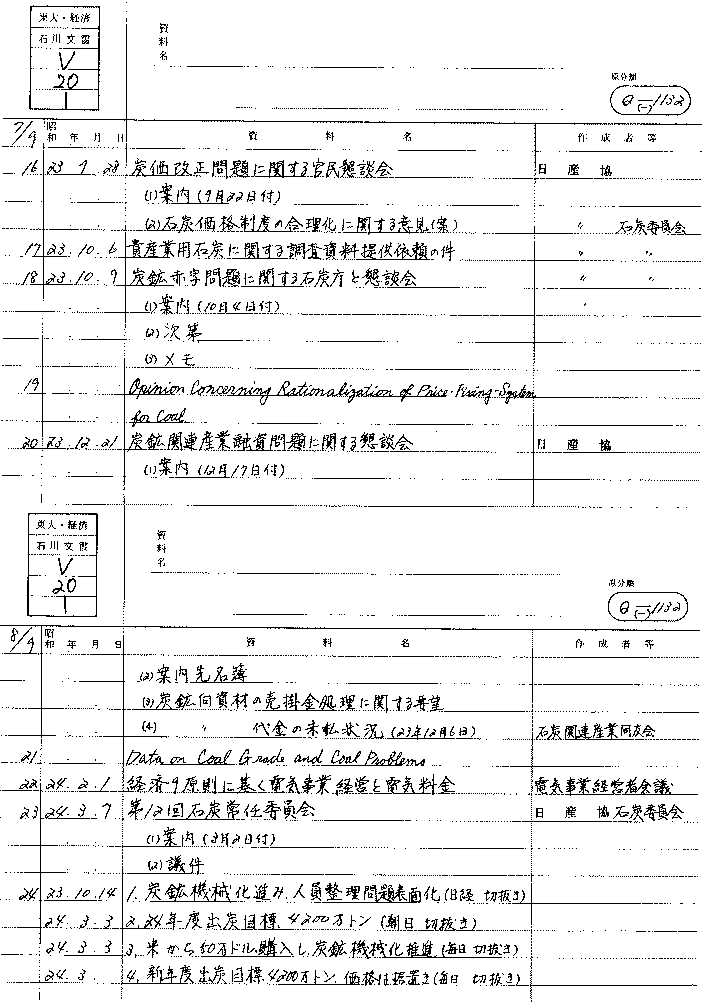 東大・経済
石川文書
V
20
1
資料名
原分類
Q(一)-1132
7/9 昭和 年 月 日 資料名 作成者等
16 23 9 28 炭価改正問題に関する官民懇談会 日産協
(1)案内(9月22日付)
(2)石炭価格制度の合理化に関する意見(案) 〃 石炭委員会
17 23.10.6 貴産業用石炭に関する調査資料提供依頼の件 〃 〃
18 23.10.9 炭鉱赤字問題に関する石炭庁と懇談会 〃 〃
(1)案内(10月4日付)
(2)次第
(3)メモ
19 Opinion Concerning Rationalization of Price-Fixing-System
for Coal
20 23.12.21 炭鉱関連産業融資問題に関する懇談会 日産協
(1)案内(12月17日付)
東大・経済
石川文書
V
20
1
資料名
原分類
Q(一)-1132
8/9 昭和 年 月 日 資料名 作成者等
(2)案内先名簿
(3)炭鉱向資材の売掛金処理に関する要望
(4) 〃 代金の未払状況(23年12月6日) 石炭関連産業同友会
21 Data on Coal Grade and Coal Problems
22 24.2.1 経済9原則に基く電気事業経営と電気料金 電気事業経営者会議
23 24.3.7 第12回石炭常任委員会 日産協 石炭委員会
(1)案内(3月2日付)
(2)議件
24 23.10.14 1.炭鉱機械化進み、人員整理問題表面化(日経 切抜き)
24.3.3 2.24年度出炭目標、4200万トン(朝日 切抜き)
24.3.3 3.米から50万ドル購入し炭鉱機械化推進(毎日 切抜き)
24.3. 4.新年度出炭目標4200万トン、価格は据置き(毎日 切抜き)